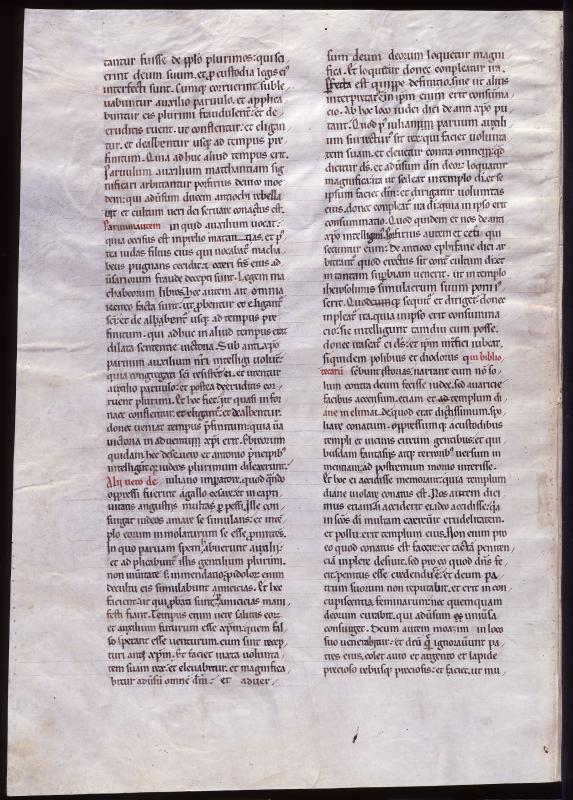 tantur fuisse de pplo plurimos: qui sci
erint deum suum. et p custodia legis ei
interfecti sunt. Cumq corruerint suble
uabuntur auxilio paruulo. et applica
buntur eis plurimi fraudulent. et de
eruditis ruent. ut conflentur. et eligan
tur. et dealbentur usq ad tempus pre
finitum. Quia adhuc aliud tempus erit.
Paruulum auxilium matthatiam sig
nificari arbitrantur porfirius de uico moe
dem: qui aduersum duces antiochi rebella
uit et cultum ueri dei seruare conatus est.
Paruum autem inquid auxilium uocat.
quia occisus est in prelio matathias. et p
tea iudas filius eius qui uocabatur macha
beus pugnans cecidit. et ceteri frs eius ad
uersariorum fraude decepti sunt. Legem ma
chabeorum libros hec autem ait omnia
iccirco facta sunt. ut pbentur et eligant
sci. et dealbabent usq ad tempus pre
finitum. qui adhuc in aliud tempus erat
dilata sententie uictoria. Sub antixpo
paruum auxilium nri intelligi uolunt
quia congregati sci resistent ei. et utentur
auxilio paruulo. et postea de eruditis cor
ruent plurimi. Et hoc fiet. ut quasi in for
nace conflentur. et eligant. et dealbentur.
donec ueniat tempus pfinitum. quia ua
uictoria in aduentum xpi erit. Ebreorum
quidam hec de seuero et antonio principib
intelligunt. qui iudeos plurimum dilexerunt.
Alii uero de iuliano imperatore. quod qndo
oppressi fuerint a gallo cesare. et in capti
uitatis angustiis multa ppessi. Ille con
surgat iudeos amare se simulans. et in te
plo eorum immolaturum se esse pmittens.
In quo paruam spem habuerunt auxilii.
et applicabunt illis gentilium plurimi.
non in ueritate sed in mendatio. p idolor enim
cecultu eis simulabunt amicicias. Et hoc
facient. ut qui pbati sunt amicicias mani
festi fiant. Tempus enim uere salutis eor
et auxilium futurum esse xpm. quem fal
so sperant esse uenturum. cum sint recep
turi antixpm. Et faciet iuxta uolunta
tem suam rex. et eleuabitur. et magnifica
bitur aduersum omne dm. et aduer
sum deum deorum loquetur magni
fica. Et loquetur donec conpleatur ira.
Perfecta est quippe definitio. siue ut alius
interpretatus. in ipm enim erit consuma
cio. Ab hoc loco iudei dici de antixpo pu
tant. Quod p iuliani paruum auxili
um surrectur sit rex. qui faciet uolunta
tem suam. et eleuetur contra omnem q
dicitur ds. et aduersum dm deor loquatur
magnifica. ita ut sedeat in templo di. et se
ipsum faciet dm. et dirigatur uoluntas
eius. donec compleatur ira di. quia in ipso erit
consummatio. Quod quidem et nos de anti
xpo intelligimus. Porfirius autem et ceti qui
secuntur eum. de antioco ephifane dici ar
bitrantur quod erectus sit contra cultum di. et
in tantam supbiam uenerit. ut in templo
iherosolimis simulacrum suum poni ius
serit. Quodcumq sequitur et diriget donec
impleatur ira. quia in ipso erit consumma
cio. sic intelligunt tamdiu eum posse.
donec irascatur ei ds. et ipm interfici iubeat.
Siquidem polibius et diodorus qui biblio
tecaru scribunt istorias. narrant eum non so
lum contra deum fecisse iudee. sed auaricie
facibus accensum. etiam et ad templum di
ane in elimaide. quod erat ditissimum. spo
liare conatum. oppressumq a custodibus
templi et uicinis circum gentibus. et qui
busdam fantasiis atq terrorib uersum in
mentiam. ad postremum morio interisse.
Et hoc ei accidisse memorant. quia templum
diane uiolare conatus est. Nos autem dici
mus etiamsi acciderit ei. ideo accidisse. qa
in scos di multam exercuit crudelitatem.
et polluerit templum eius. Non enim pro
eo quod conatus est facere. et acta peniten
cia implere desiuit. sed pro eo quod dns fe
cit. penitus esse credendum. et deum pa
trum suorum non reputabit. et erit in con
cupiscentia feminarum. nec quemquam
deorum curabit. qui aduersum uniuersa
consurget. Deum autem moazim in loco
suo uenerabitur. et deu q ignorauunt pa
tres eius. colet auro et argento et lapide
precioso rebusq preciosis. et faciet. ut mu